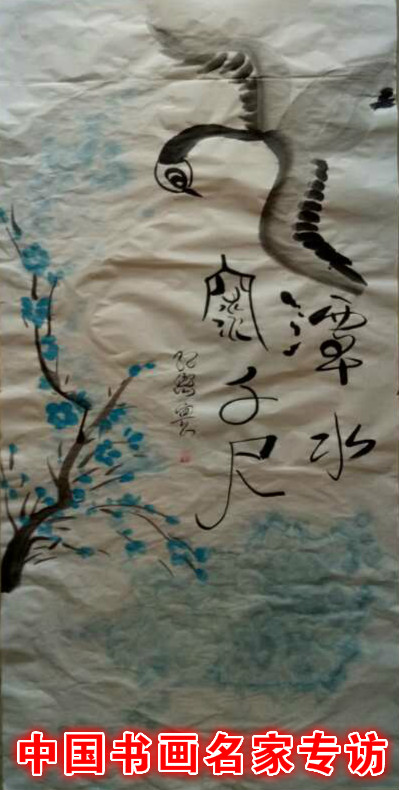 潭水
深千尺
中国书画名家专访